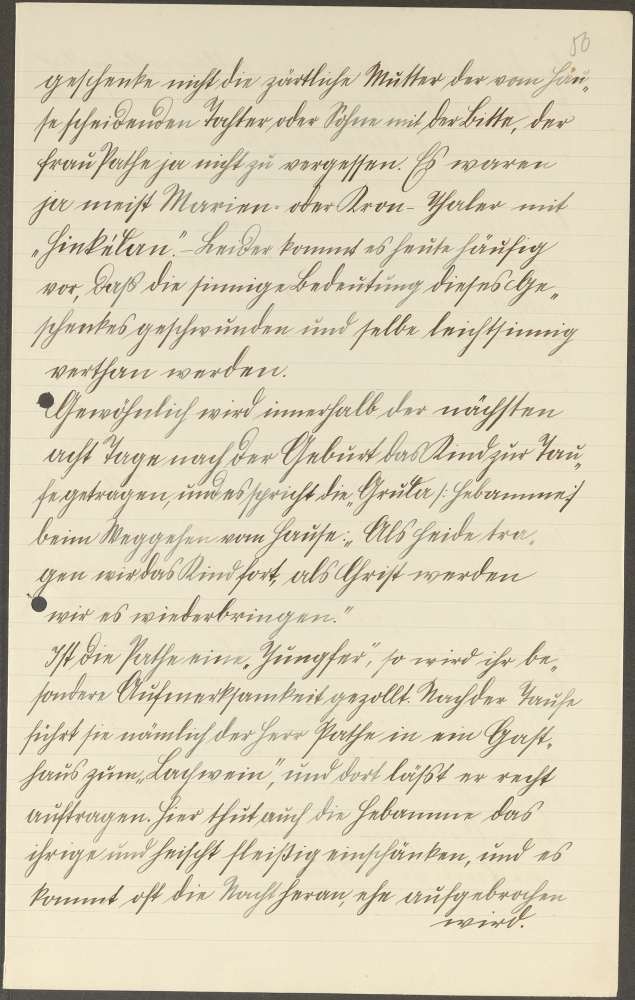 50
geschenke nicht die zärtliche Mutter der vom Hau„
se scheidenden Tochter oder Sohne mit der Bitte, der
Frau Pathe ja nicht zu vergessen. Es waren
ja meist Marien- oder Kron-Thaler mit
„Hinkélan". – Leider kommt es heute häufig
vor, daß die sinnige Bedeutung dieses Ge„
schenkes geschwunden und selbe leichtsinnig
verthan werden.
Gewöhnlich wird innerhalb der nächsten
acht Tage nach der Geburt das Kind zur Tau„
fe getragen, und es spricht die „Grula /: Hebamme :/
beim Weggehen vom Hause: „Als Heide tra„
gen wir das Kind fort, als Christ werden
wir es wiederbringen."
Ist die Pathe eine „Jungfer", so wird ihr be„
sondere Aufmerksamkeit gezollt. Nach der Taufe
führt sie nämlich der Herr Pathe in ein Gast„
haus zum „Lachwein", und dort läßt er recht
auftragen. Hier thut auch die Hebamme das
ihrige und heischt fleißig einschänken, und es
kommt oft die Nacht heran, ehe aufgebrochen
wird.